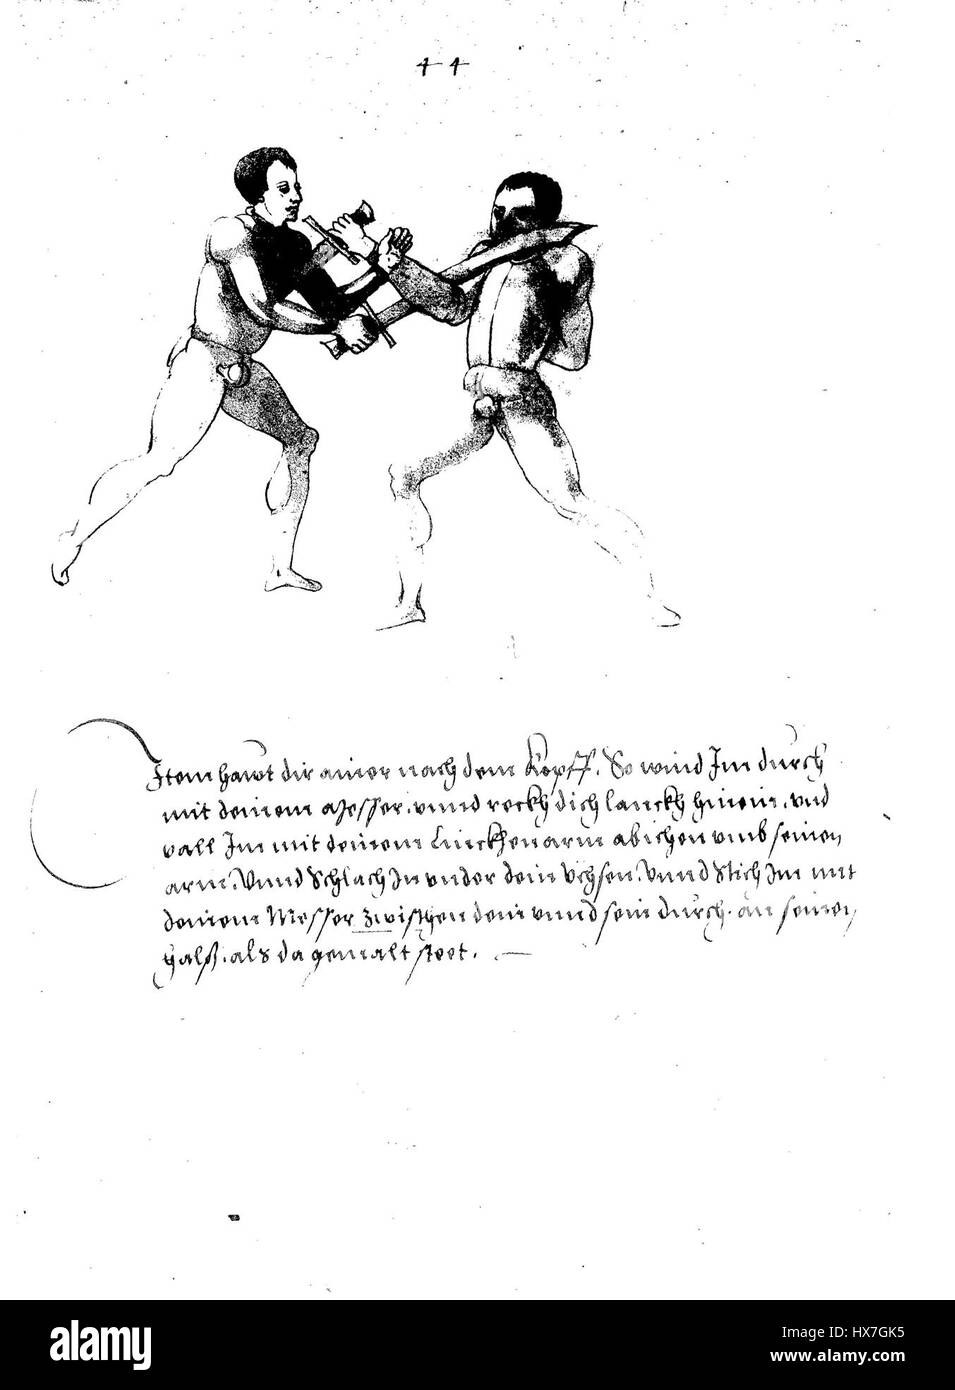 44
Item hawt dir ainer nach dem Kopff. So wind Im durch
mit deinem Messer. vnnd reckh dich lanckh hinein. vnd
vall Im mit deinem Linckhen arm abichen vmb seinen
arm. Vnnd Schlach In vnder dein Vchsen. Vnnd Stich Im mit
deinem Messer zwischen dein vnnd sein durch. an seinen
halß. als da gemalt steet.
alamy
Image ID: HX7GK5
www.alamy.com